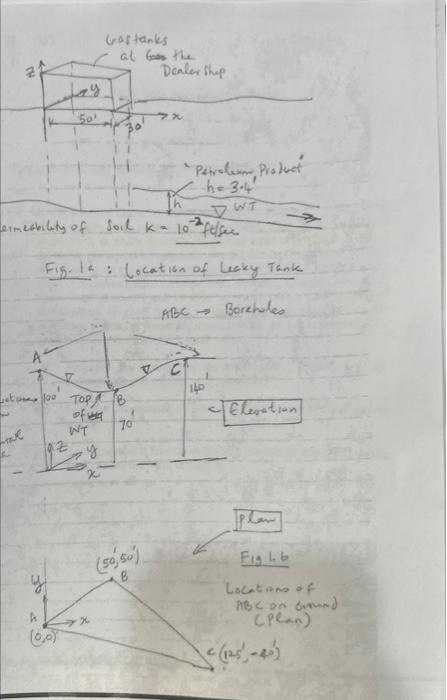 Gas tanks
at the
Dealership
Z
y
50'
x
30'
"Petroleum Product"
h = 3.4'
h
WT
of Soil K = 10⁻² ft/sec
Fig. 1a : Location of Leaky Tank
ABC → Boreholes
A
C
100'
TOP
of
WT
B
140'
70'
Elevation
Z
y
x
Plan
(50',50')
B
Fig 1.b
y
Locations of
ABC on Ground
(Plan)
A
x
(0,0)
C (125', -40')